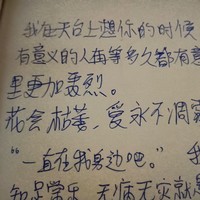 我在天台上想你的时候
有意义的人再等多久都有意
里更加轰烈。
花会枯萎，爱永不凋零
“一直在我身边吧。” 我
知足常乐 无病无灾就是